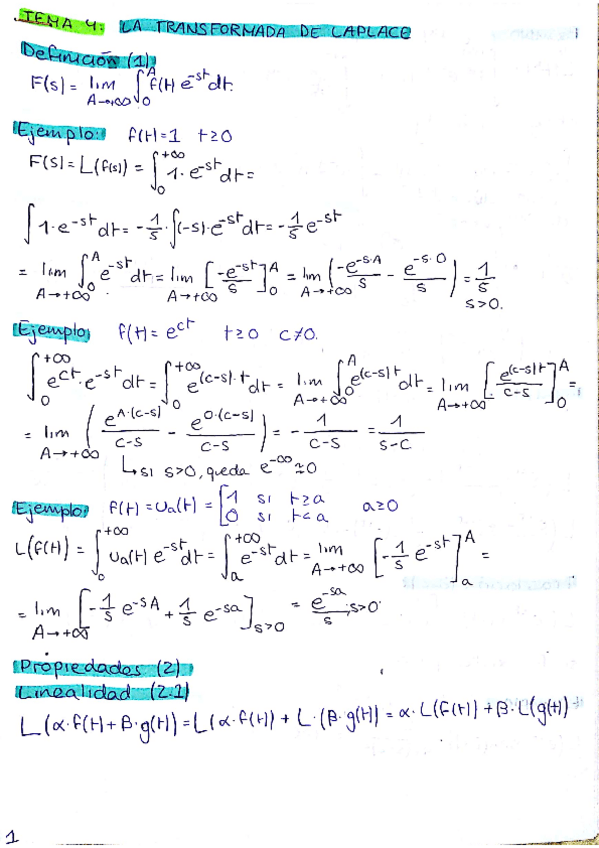 TEMA 4: LA TRANSFORMADA DE LAPLACE
Definición (1)
F(s) = lim_{A→+∞} ∫_0^A f(t) e^{-st} dt.
Ejemplo: f(t)=1 t≥0
F(s) = L(f(s)) = ∫_0^{+∞} 1·e^{-st} dt =
∫ 1·e^{-st} dt = -1/s · ∫(-s)·e^{-st} dt = -1/s e^{-st}
= lim_{A→+∞} ∫_0^A e^{-st} dt = lim_{A→+∞} [-e^{-st}/s]_0^A = lim_{A→+∞} (-e^{-s·A}/s - e^{-s·0}/s) = 1/s s>0.
Ejemplo f(t) = e^{ct} t≥0 c≠0.
∫_0^{+∞} e^{ct}·e^{-st} dt = ∫_0^{+∞} e^{(c-s)·t} dt = lim_{A→+∞} ∫_0^A e^{(c-s)t} dt = lim_{A→+∞} [e^{(c-s)t}/(c-s)]_0^A =
= lim_{A→+∞} (e^{A·(c-s)}/(c-s) - e^{0·(c-s)}/(c-s)) = -1/(c-s) = 1/(s-c)
↳ si s>0, queda e^{-∞} ≈ 0
Ejemplo: f(t) = u_a(t) = [1 si t≥a
0 si t<a a≥0
L(f(t)) = ∫_0^{+∞} u_a(t) e^{-st} dt = ∫_a^{+∞} e^{-st} dt = lim_{A→+∞} [-1/s e^{-st}]_a^A =
= lim_{A→+∞} [-1/s e^{-sA} + 1/s e^{-sa}]_{s>0} = e^{-sa}/s, s>0.
Propiedades (2)
Linealidad (2.1)
L(α·f(t)+β·g(t)) = L(α·f(t)) + L·(β·g(t)) = α·L(f(t)) + β·L(g(t))
1